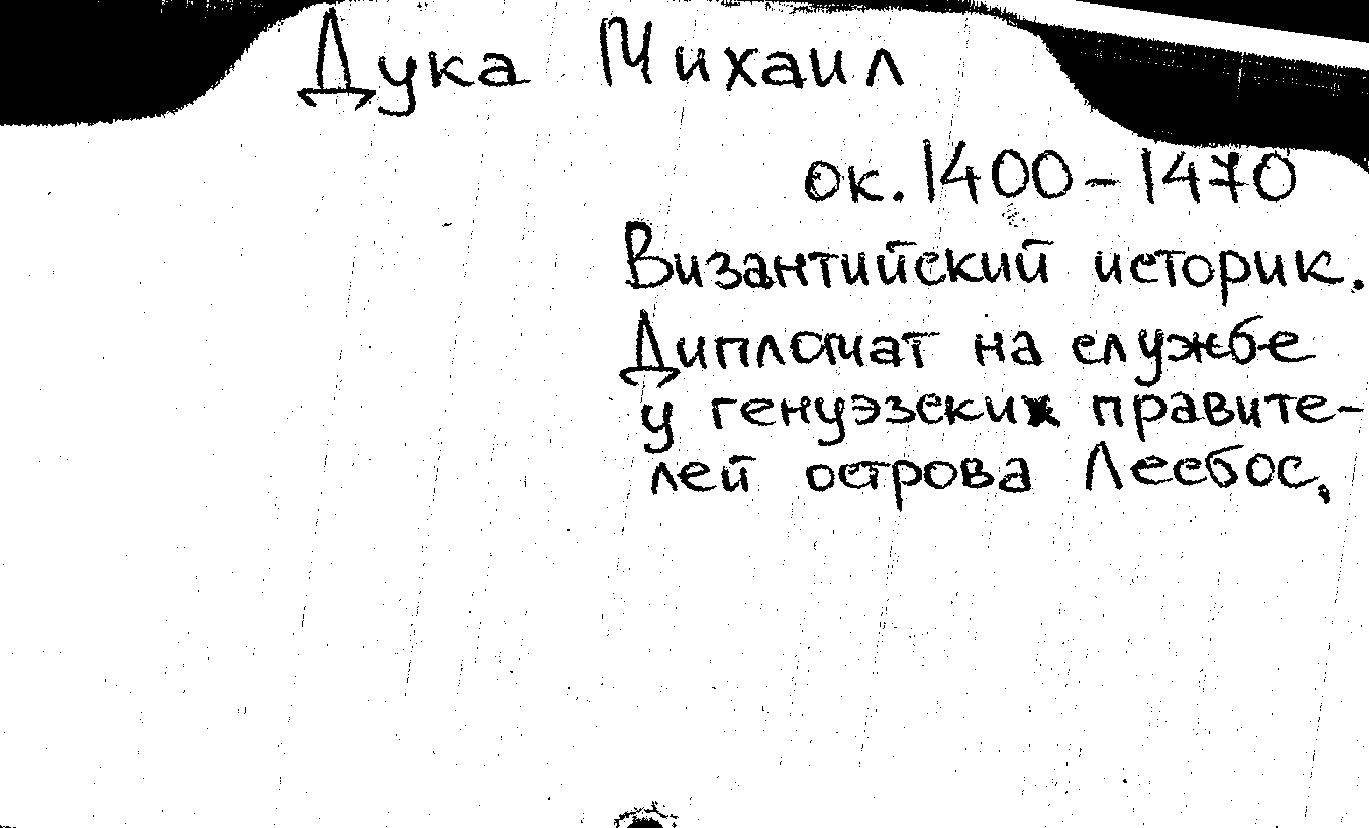 Дука Михаил
ок. 1400 - 1470
Византийский историк.
Дипломат на службе
у генуэзских правите-
лей острова Лесбос.